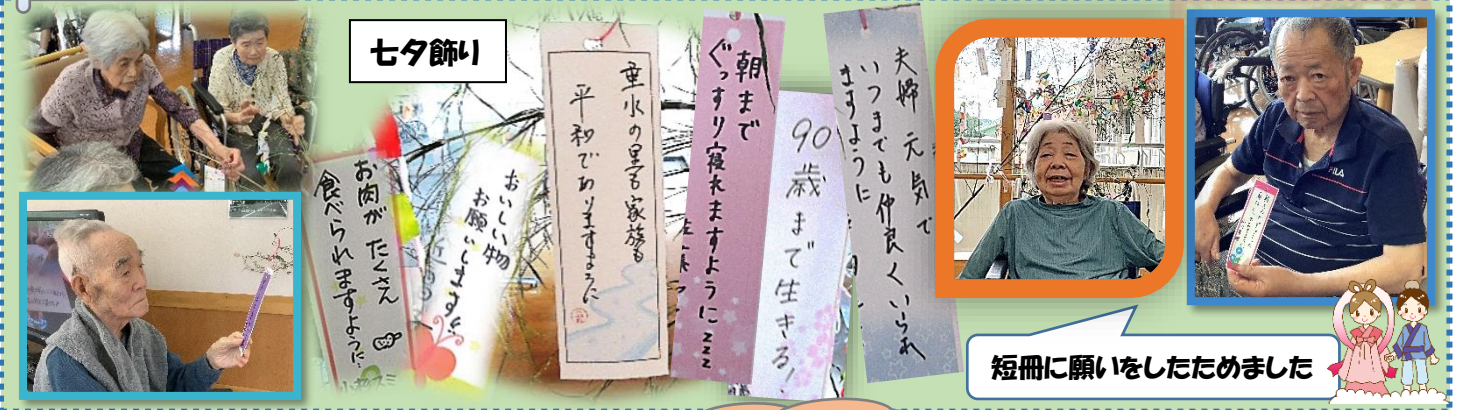 七夕飾り
お肉が たくさん
食べられますように…
おいしい物
お願いします!!
垂水の里も家族も
平和でありますように
朝まで
ぐっすり寝れますようにzzz
90歳まで生きる!
夫婦元気で
いつまでも仲良くいられ
ますように
FILA
短冊に願いをしたためました